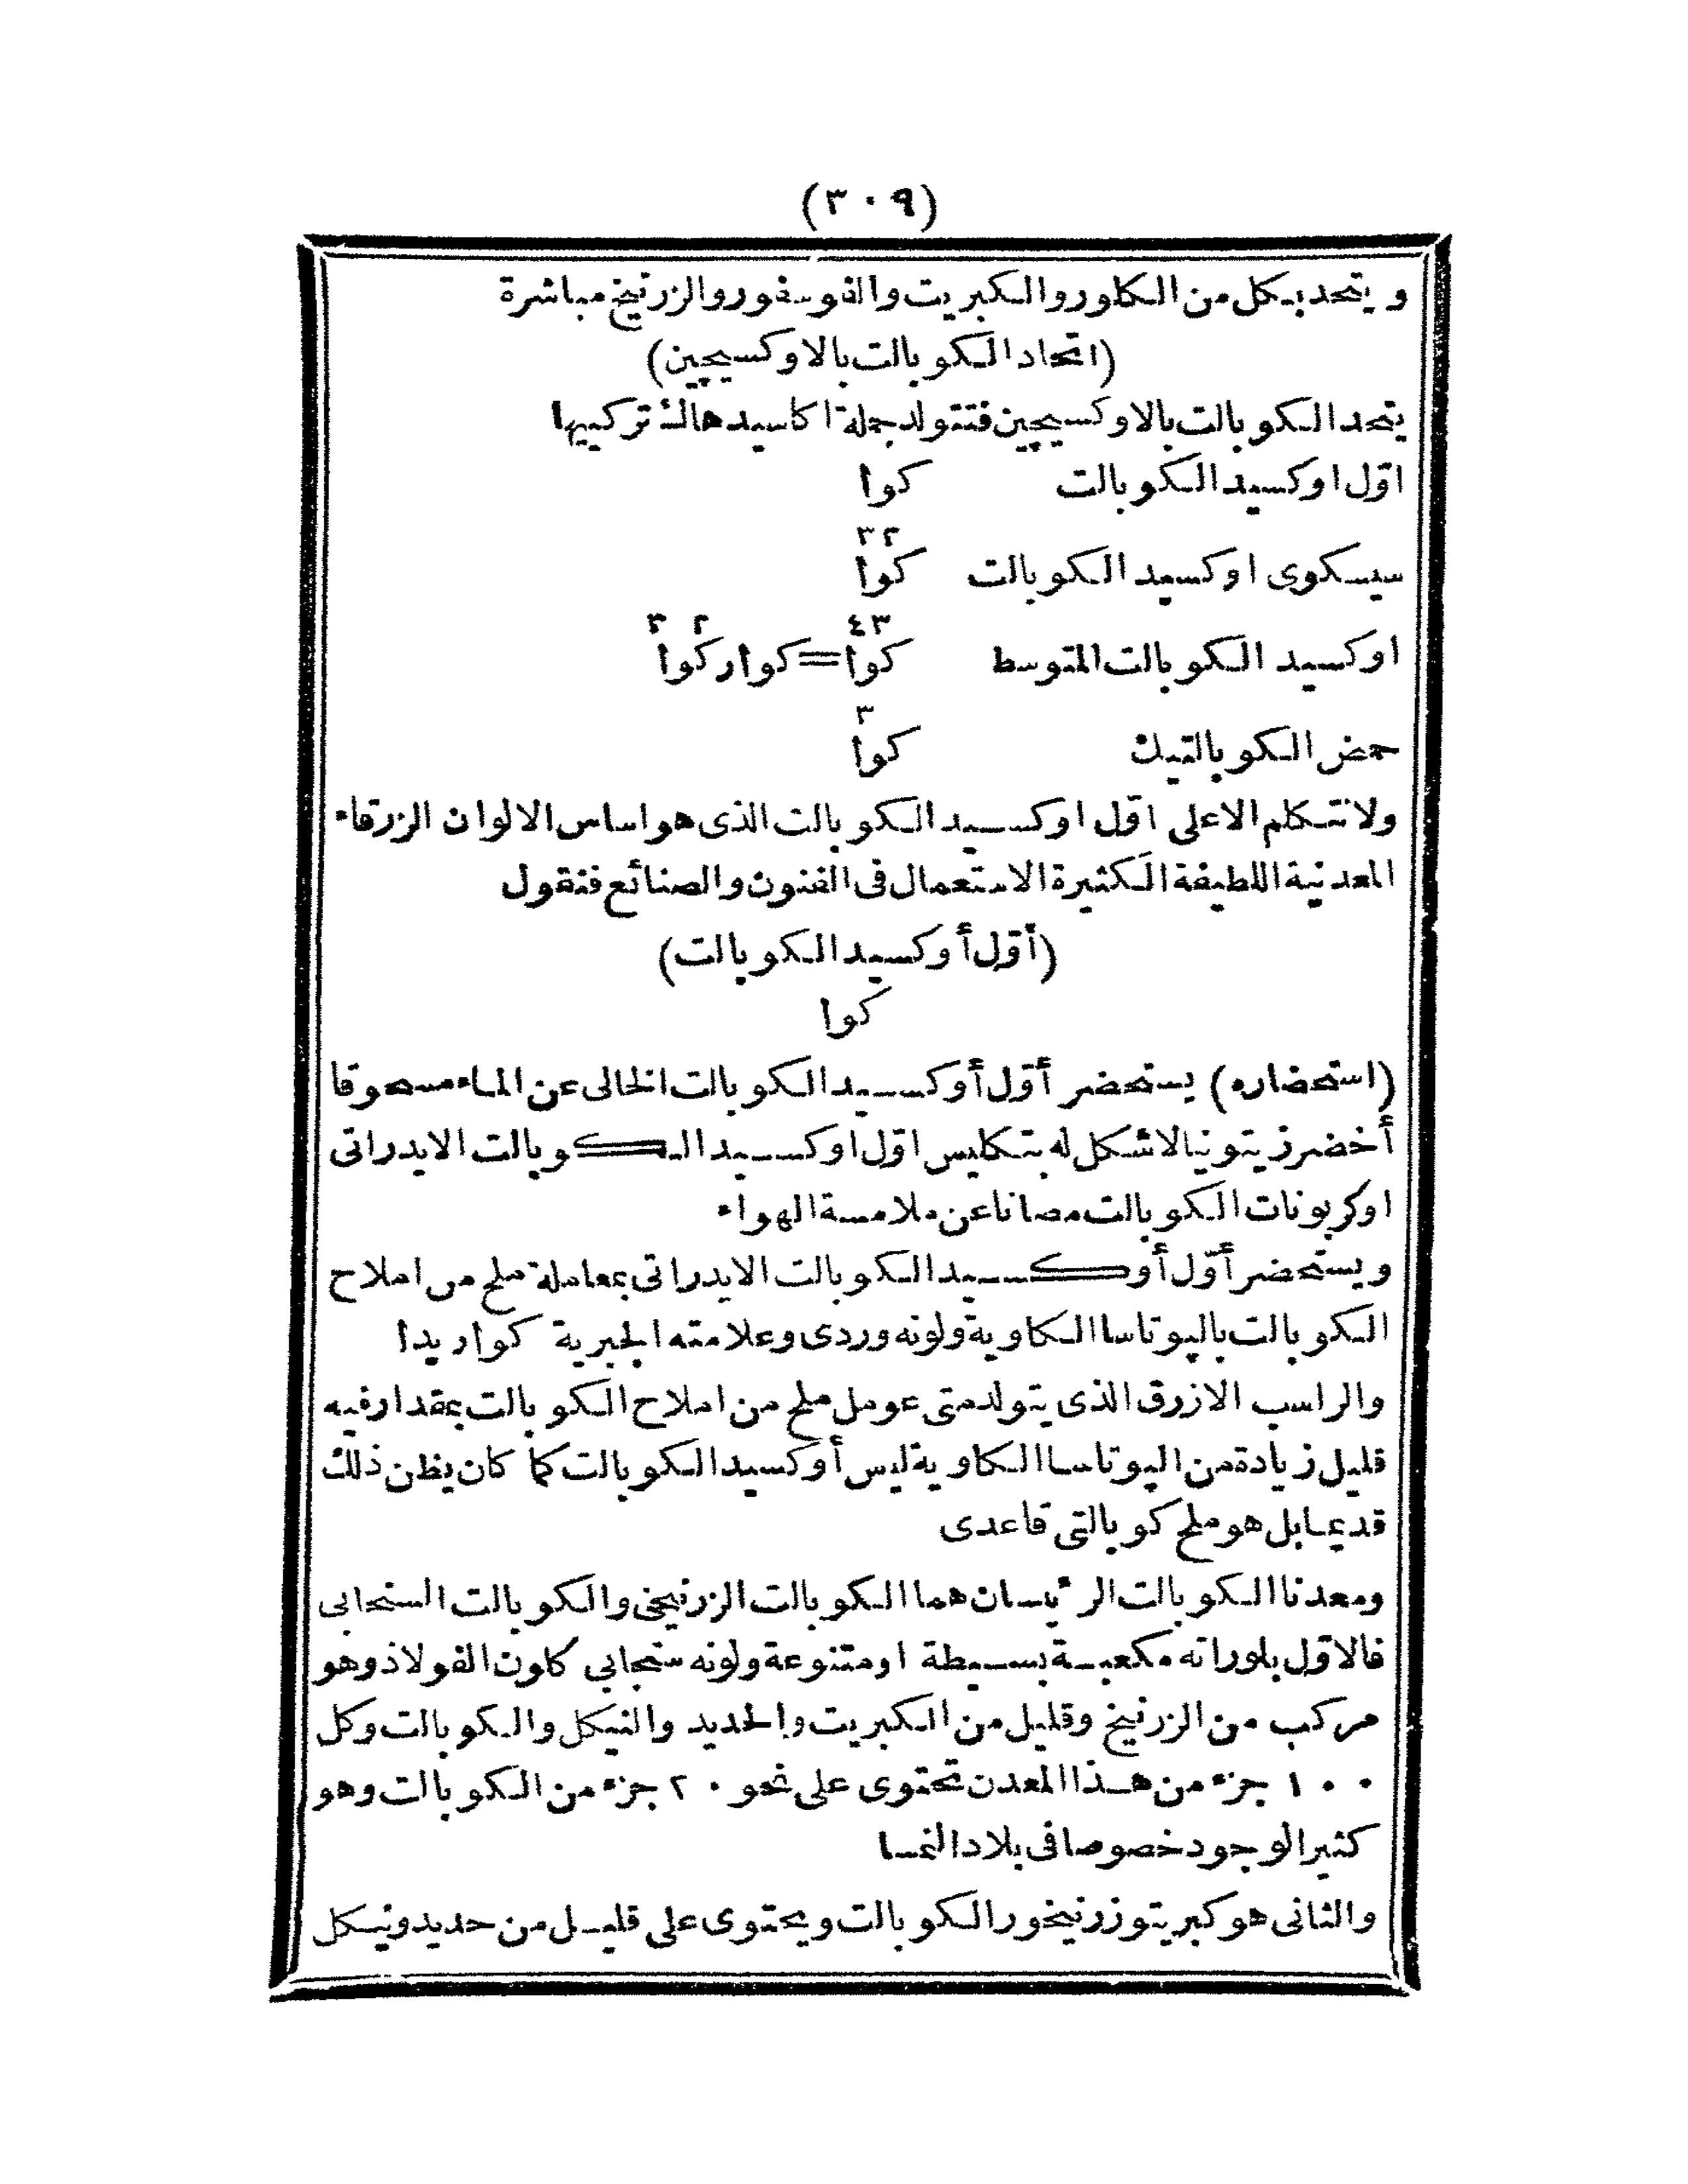 (٣٠٩)
ويتحد بكل من الكلور والكبريت والفوسفور والزرنيخ مباشرة
(اتحاد الكوبالت بالاوكسيچين)
يتحد الكوبالت بالاوكسيچين فتتولد جملة اكاسيد هاك تركيبها
اوّل اوكسيد الكوبالت كوا
٢ ٣
سيسكوى اوكسيد الكوبالت كوا
٣ ٤ ٢ ٣
اوكسيد الكوبالت المتوسط كوا=كوا ر كوا
٣
حمض الكوبالتيك كوا
ولا نتكلم الا على اوّل اوكسيد الكوبالت الذى هو اساس الالوان الزرقاء
المعدنية اللطيفة الكثيرة الاستعمال فى الفنون والصنائع فنقول
(أوّل أوكسيد الكوبالت)
كوا
(استحضاره) يستحضر أوّل أوكسيد الكوبالت الخالى عن الماء مسحوقا
أخضر زيتونيا لا شكل له بتكليس اوّل اوكسيد الكوبالت الايدراتى
اوكربونات الكوبالت مصانا عن ملامسة الهواء
ويستحضر أوّل أوكسيد الكوبالت الايدراتى بمعاملة ملح من املاح
الكوبالت بالپوتاسا الكاوية ولونه وردى وعلامته الجبرية كوا ر يدا
والراسب الازرق الذى يتولد متى عومل ملح من املاح الكوبالت بمقدار فيه
قليل زيادة من الپوتاسا الكاوية ليس أوكسيد الكوبالت كما كان يظن ذلك
قديما بل هو ملح كوبالتى قاعدى
ومعدنا الكوبالت الرئيسان هما الكوبالت الزرنيخى والكوبالت السنجابى
فالاوّل بلوراته مكعبية بسيطة او متنوعة ولونه سنجابى كلون الفولاذ وهو
مركب من الزرنيخ وقليل من الكبريت والحديد والنيكل والكوبالت وكل
١٠٠ جزء من هذا المعدن تحتوى على نحو ٢٠ جزء من الكوبالت وهو
كثير الوجود خصوصا فى بلاد النمسا
والثانى هو كبريتو زرنيخور الكوبالت ويحتوى على قليل من حديد ونيكل